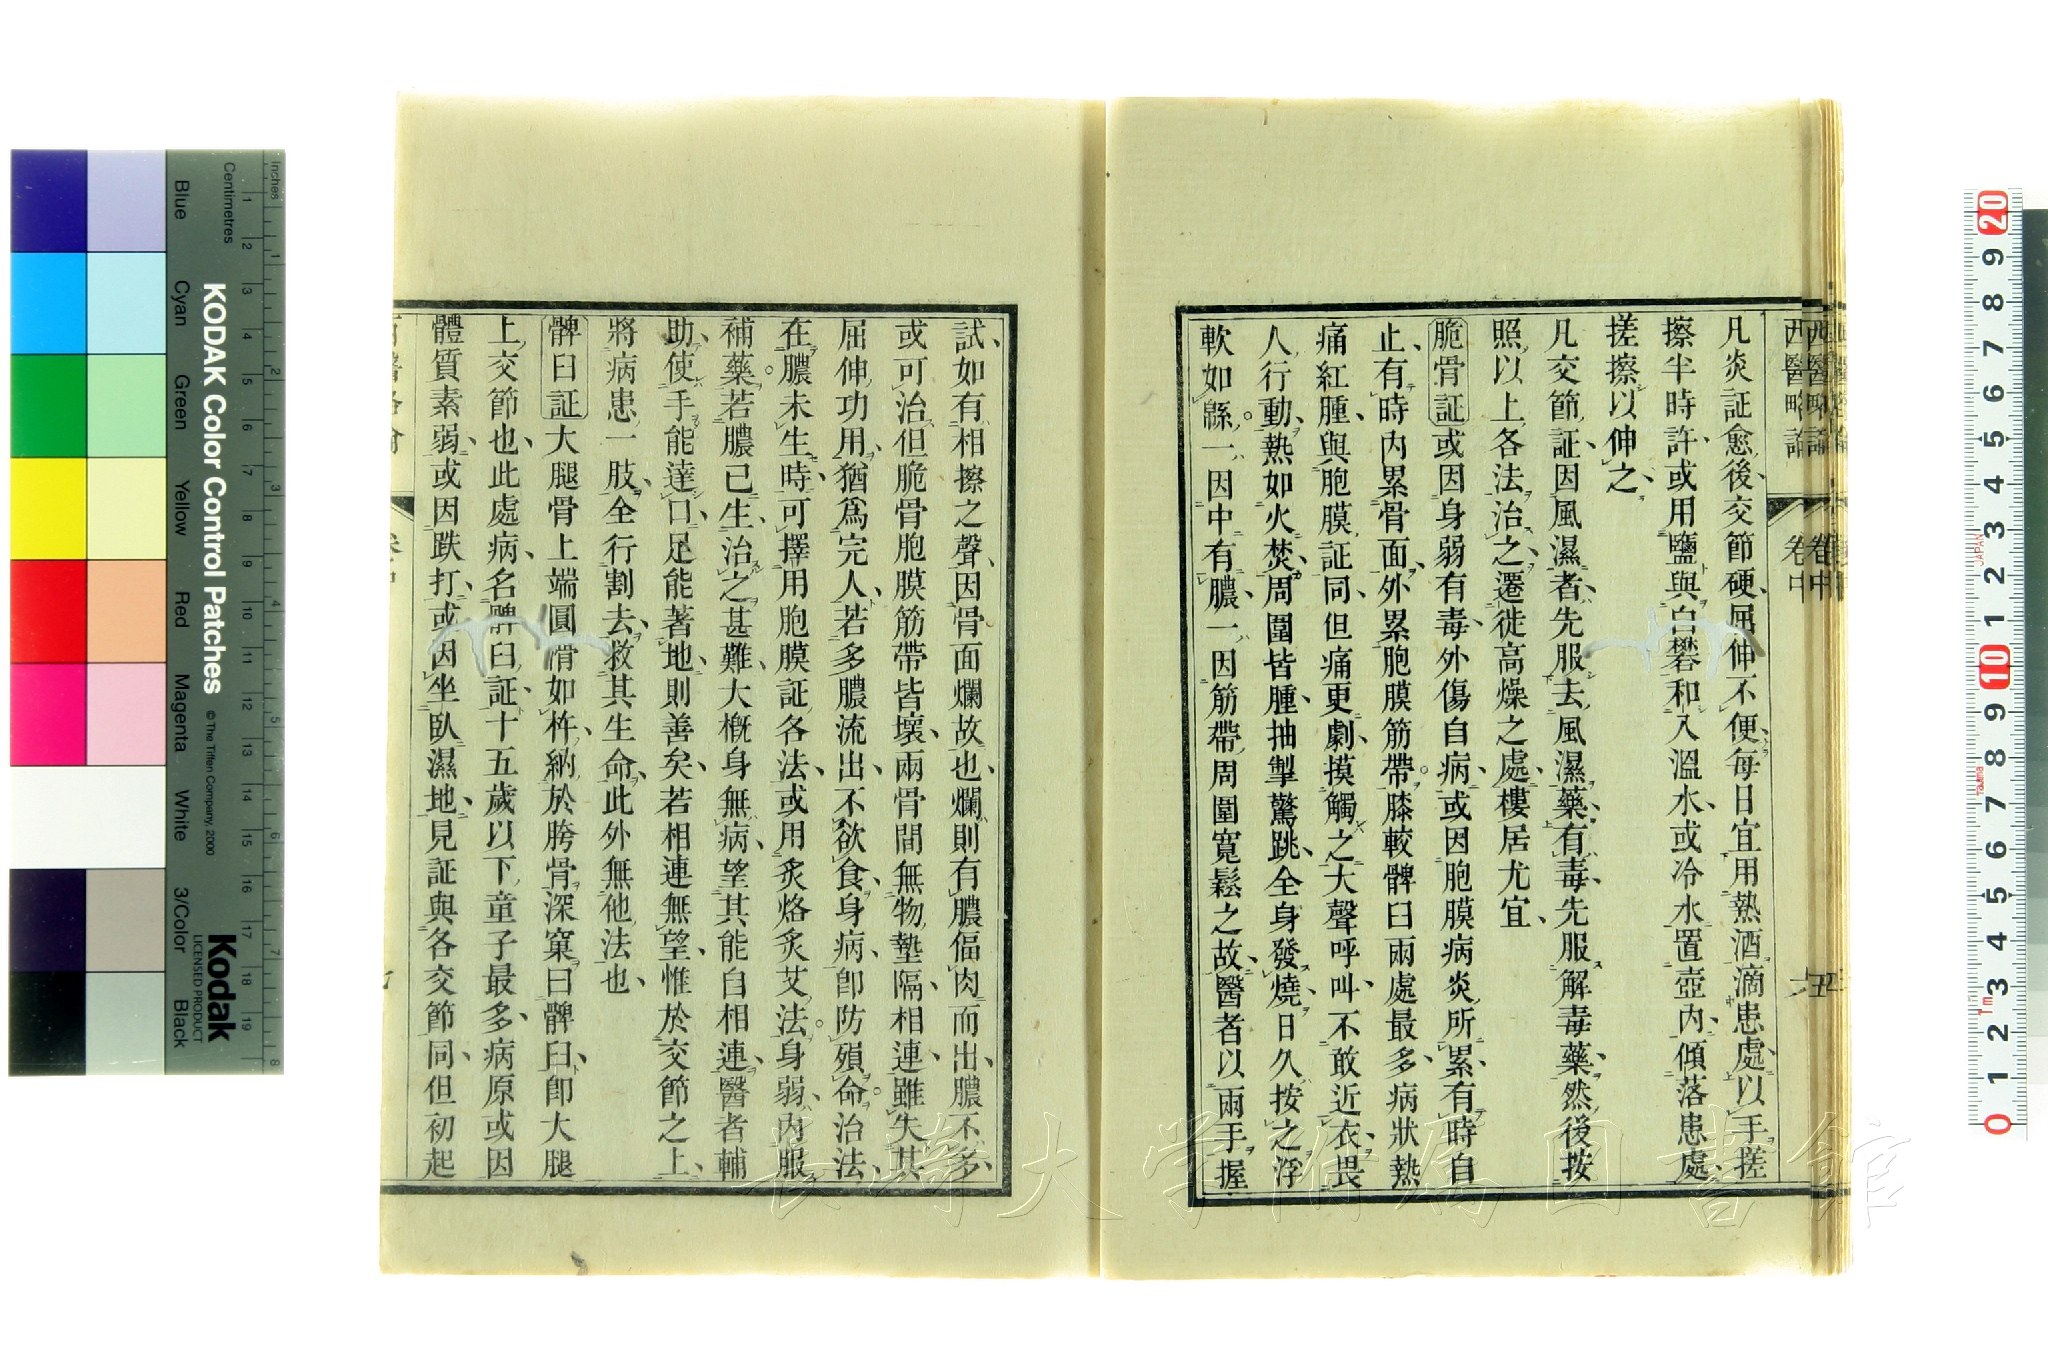 西醫略論
卷中
凡炎証愈後、交節硬、屈伸不便、每日宜用熱酒滴患處、以手搓
擦半時許、或用鹽與白礬和入溫水、或冷水置壺內、傾落患處、
搓擦以伸之、
凡交節証、因風濕者、先服去風濕藥、有毒、先服解毒藥、然後按
照以上各法治之、遷徙高燥之處、樓居尤宜、
脆骨証或因身弱有毒、外傷自病、或因胞膜病炎所累、有時自
止、有時內累骨面、外累胞膜筋帶。膝較髀臼兩處最多、病狀熱
痛紅腫、與胞膜証同、但痛更劇、摸觸之大聲呼叫、不敢近衣、畏
人行動、熱如火焚、周圍皆腫、抽掣驚跳、全身發燒、日久按之浮
軟如綿。一因中有膿、一因筋帶周圍寬鬆之故、醫者以兩手握
試、如有相擦之聲、因骨面爛故也、爛則有膿傐肉而出、膿不多、
或可治、但脆骨胞膜筋帶皆壞、兩骨間無物墊隔、相連、雖失其
屈伸功用、猶爲完人、若多膿流出、不欲食、身病、卽防殞命。治法、
在膿未生時、可擇用胞膜証各法、或用炙烙炙艾法。身弱、內服
補藥。若膿已生、治之甚難、大槪身無病、望其能自相連、醫者輔
助、使手能達口、足能著地、則善矣、若相連無望、惟於交節之上、
將病患一肢、全行割去、救其生命、此外無他法也、
髀臼証大腿骨上端圓滑如杵、納於胯骨深窠曰髀臼、卽大腿
上交節也、此處病、名髀臼証、十五歲以下、童子最多、病原或因
體質素弱、或因跌打、或因坐臥濕地、見証與各交節同、但初起
KODAK Color Control Patches
© The Tiffen Company, 2000
Kodak
LICENSED PRODUCT
Inches
Centimetres
Blue
Cyan
Green
Yellow
Red
Magenta
White
3/Color
Black
長崎大学附属図書館